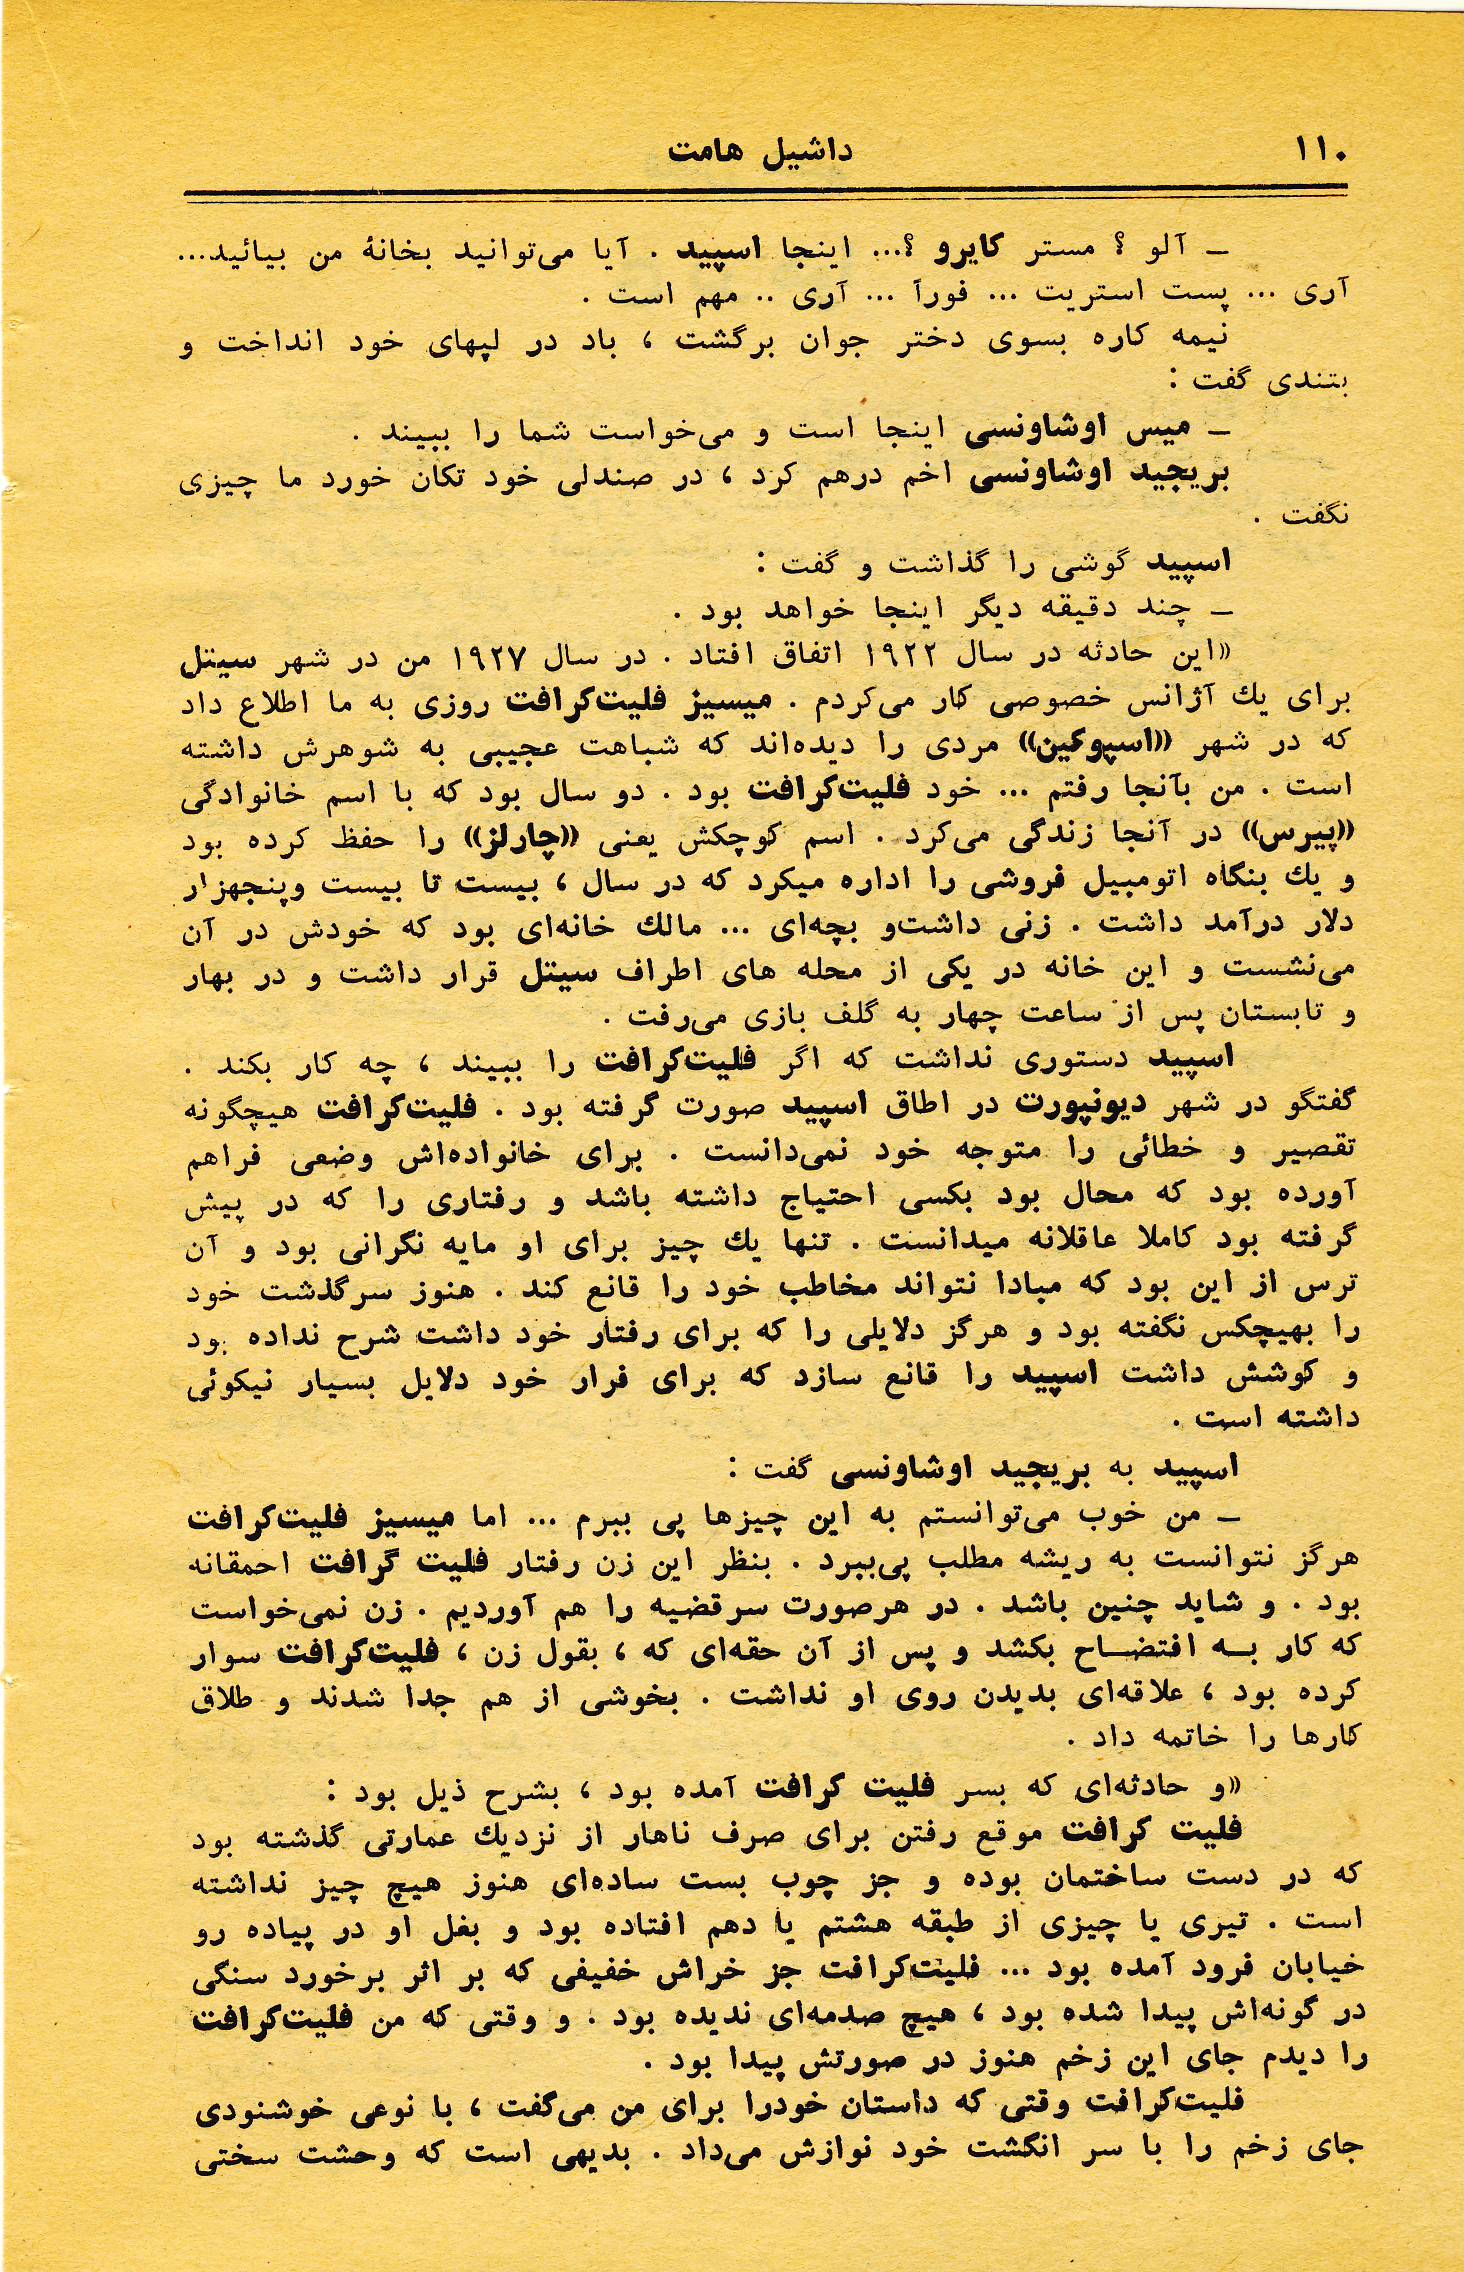 ۱۱۰
داشیل هامت
ــ آلو ؟ مستر کایرو ؟... اینجا اسپید . آیا می‌توانید بخانهٔ من بیائید...
آری ... پست استریت ... فورآ ... آری .. مهم است .
نیمه کاره بسوی دختر جوان برگشت ، باد در لپهای خود انداخت و
بتندی گفت :
ــ میس اوشاونسی اینجا است و می‌خواست شما را ببیند .
بریجید اوشاونسی اخم درهم کرد ، در صندلی خود تکان خورد ما چیزی
نگفت .
اسپید گوشی را گذاشت و گفت :
ــ چند دقیقه دیگر اینجا خواهد بود .
«این حادثه در سال ۱۹۲۲ اتفاق افتاد . در سال ۱۹۲۷ من در شهر سیتل
برای یك آژانس خصوصی کار می‌کردم . میسیز فلیت‌کرافت روزی به ما اطلاع داد
که در شهر «اسپوکین» مردی را دیده‌اند که شباهت عجیبی به شوهرش داشته
است . من بآنجا رفتم ... خود فلیت‌کرافت بود . دو سال بود که با اسم خانوادگی
«پیرس» در آنجا زندگی می‌کرد . اسم کوچکش یعنی «چارلز» را حفظ کرده بود
و یك بنگاه اتومبیل فروشی را اداره میکرد که در سال ، بیست تا بیست وپنجهزار
دلار درآمد داشت . زنی داشت‌و بچه‌ای ... مالك خانه‌ای بود که خودش در آن
می‌نشست و این خانه در یکی از محله های اطراف سیتل قرار داشت و در بهار
و تابستان پس از ساعت چهار به گلف بازی می‌رفت .
اسپید دستوری نداشت که اگر فلیت‌کرافت را ببیند ، چه کار بکند .
گفتگو در شهر دیونپورت در اطاق اسپید صورت گرفته بود . فلیت‌کرافت هیچگونه
تقصیر و خطائی را متوجه خود نمی‌دانست . برای خانواده‌اش وضعی فراهم
آورده بود که محال بود بکسی احتیاج داشته باشد و رفتاری را که در پیش
گرفته بود کاملا عاقلانه میدانست . تنها یك چیز برای او مایه نگرانی بود و آن
ترس از این بود که مبادا نتواند مخاطب خود را قانع کند . هنوز سرگذشت خود
را بهیچکس نگفته بود و هرگز دلایلی را که برای رفتار خود داشت شرح نداده بود
و کوشش داشت اسپید را قانع سازد که برای فرار خود دلایل بسیار نیکوئی
داشته است .
اسپید به بریجید اوشاونسی گفت :
ــ من خوب می‌توانستم به این چیزها پی ببرم ... اما میسیز فلیت‌کرافت
هرگز نتوانست به ریشه مطلب پی‌ببرد . بنظر این زن رفتار فلیت گرافت احمقانه
بود . و شاید چنین باشد . در هرصورت سرقضیه را هم آوردیم . زن نمی‌خواست
که کار بــه افتضــاح بکشد و پس از آن حقه‌ای که ، بقول زن ، فلیت‌کرافت سوار
کرده بود ، علاقه‌ای بدیدن روی او نداشت . بخوشی از هم جدا شدند و طلاق
کارها را خاتمه داد .
«و حادثه‌ای که بسر فلیت کرافت آمده بود ، بشرح ذیل بود :
فلیت کرافت موقع رفتن برای صرف ناهار از نزدیك عمارتی گذشته بود
که در دست ساختمان بوده و جز چوب بست ساده‌ای هنوز هیچ چیز نداشته
است . تیری یا چیزی از طبقه هشتم یا دهم افتاده بود و بغل او در پیاده رو
خیابان فرود آمده بود ... فلیت‌کرافت جز خراش خفیفی که بر اثر برخورد سنگی
در گونه‌اش پیدا شده بود ، هیچ صدمه‌ای ندیده بود . و وقتی که من فلیت‌کرافت
را دیدم جای این زخم هنوز در صورتش پیدا بود .
فلیت‌کرافت وقتی که داستان خودرا برای من می‌گفت ، با نوعی خوشنودی
جای زخم را با سر انگشت خود نوازش می‌داد . بدیهی است که وحشت سختی